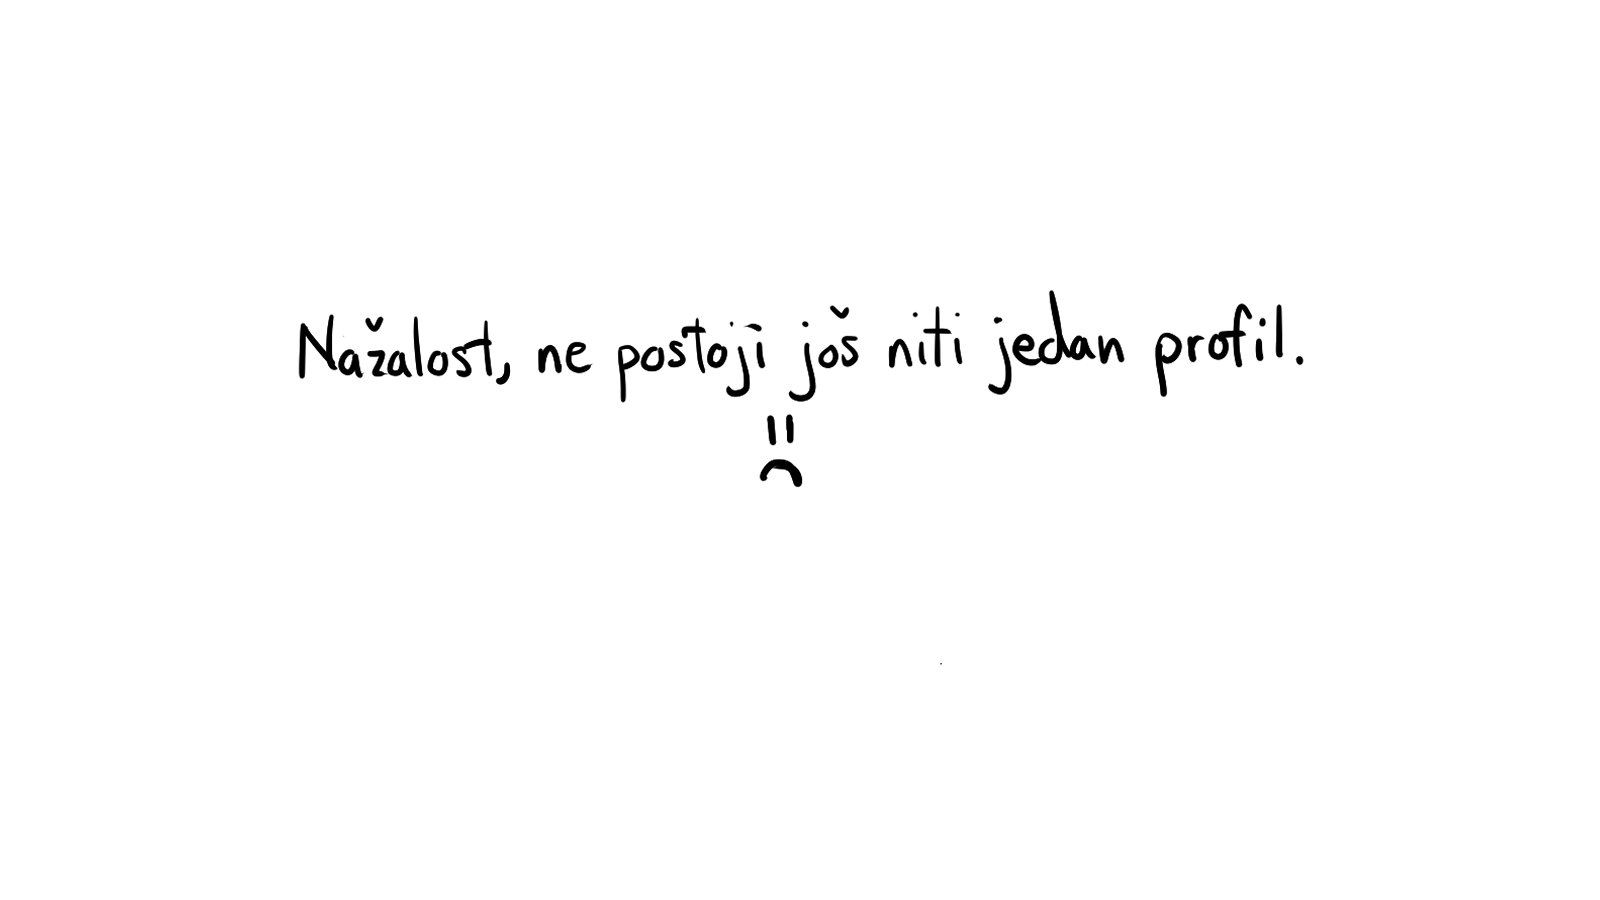 Nažalost, ne postoji još niti jedan profil.